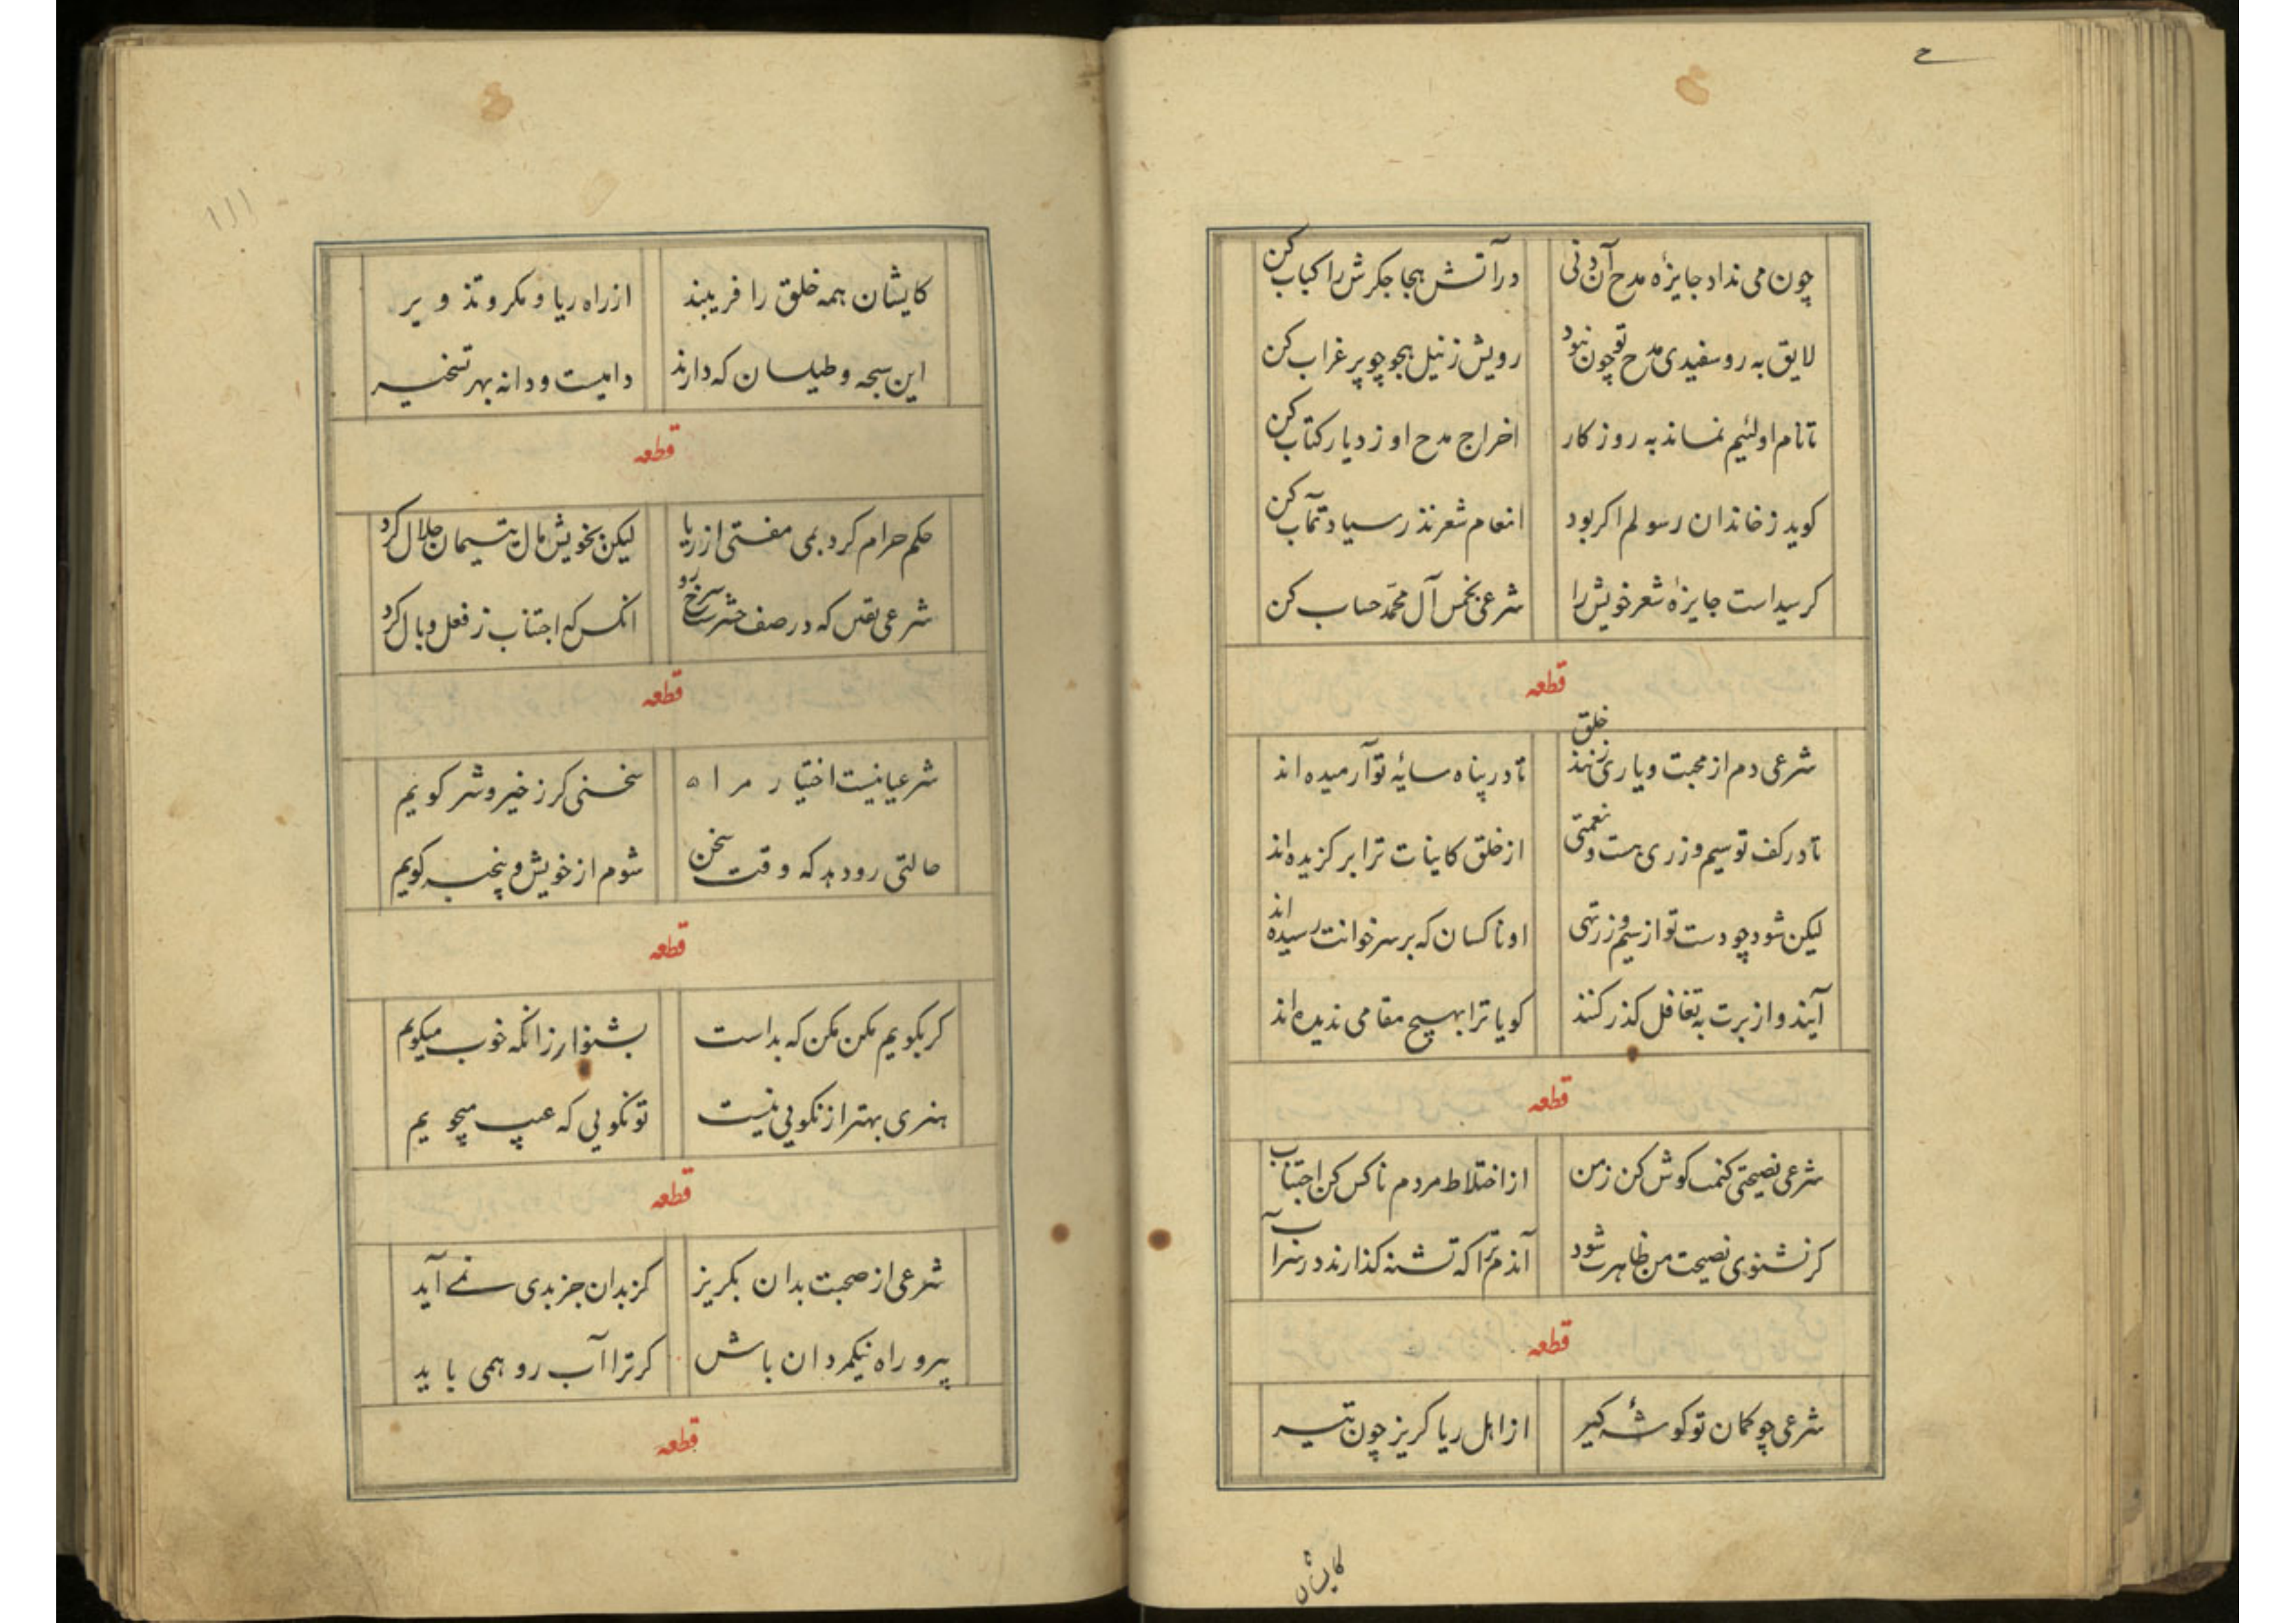 چون می نداد جایزهٔ مدح آن دنی در آتش هجا جکرش را کباب کن
لایق به رو سفیدی مدح تو چون نبود رویش ز نیل هجو چو پر غراب کن
تا نام او لئیم نماند به روزکار اخراج مدح او ز دیار کتاب کن
کوید ز خاندان رسولم اکر بود انعام شعر نذر سیادتمآب کن
کر سید است جایزهٔ شعر خویش را شرعی بخمس آل محمّد حساب کن
قطعه
شرعی دم از محبت و یاری زنند خلق تا در پناه سایهٔ تو آرمیده اند
تا در کف تو سیم و زری هست و نعمتی از خلق کاینات ترا بر کزیده اند
لیکن شود چو دست تو از سیم و زر تهی او ناکسان که بر سر خوانت رسیده اند
آیند و از برت به تغافل کذر کنند کویا ترا بهیچ مقامی ندیده اند
قطعه
شرعی نصیحتی کنمت کوش کن ز من از اختلاط مردم ناکس کن اجتناب
کر نشنوی نصیحت من ظاهرت شود آندم ترا که تشنه کذارند در سراب
قطعه
شرعی چو کمان تو کوشهٔ کیر از اهل ریا کریز چون تیر
کایشان
ااا
کایشان همه خلق را فریبند از راه ریا و مکر و تذویر
این سبحه و طیلسان که دارند دامیست و دانه بهر تسخیر
قطعه
حکم حرام کرد بمی مفتی از ریا لیکن بخویش مال یتیمان حلال کرد
شرعی یقین که در صف حشر سرخ رو انکس که اجتناب ز فعل وبال کرد
قطعه
شرعیا نیست اختیار مرا ه سخنی کر ز خیر و شر کویم
حالتی رو دهد که وقت سخن شوم از خویش و بیخبر کویم
قطعه
کر بکویم مکن مکن که بد است بشنو ار زانکه خوب میکویم
هنری بهتر از نکویی نیست تو نکویی که عیب میجویم
قطعه
شرعی از صحبت بدان بکریز کز بدان جز بدی نمے آید
پیرو راه نیکمردان باش کر ترا آب رو همی باید
قطعه